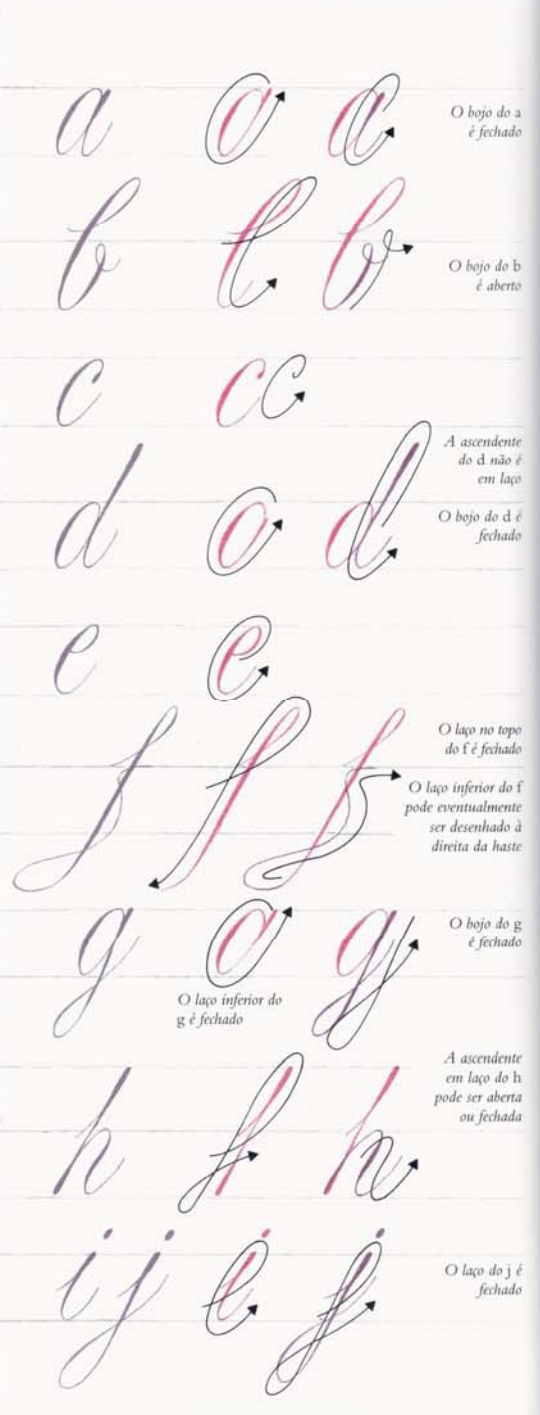 a
O bojo do a
é fechado
b
O bojo do b
é aberto
c
A ascendente
do d não é
em laço
d
O bojo do d é
fechado
e
O laço no topo
do f é fechado
f
O laço inferior do f
pode eventualmente
ser desenhado à
direita da haste
g
O bojo do g
é fechado
O laço inferior do
g é fechado
A ascendente
em laço do h
pode ser aberta
ou fechada
h
i j
O laço do j é
fechado